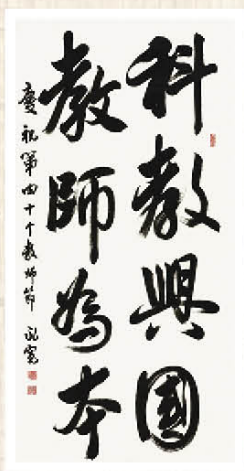 科教興國
教師為本
慶祝第四十个教师节